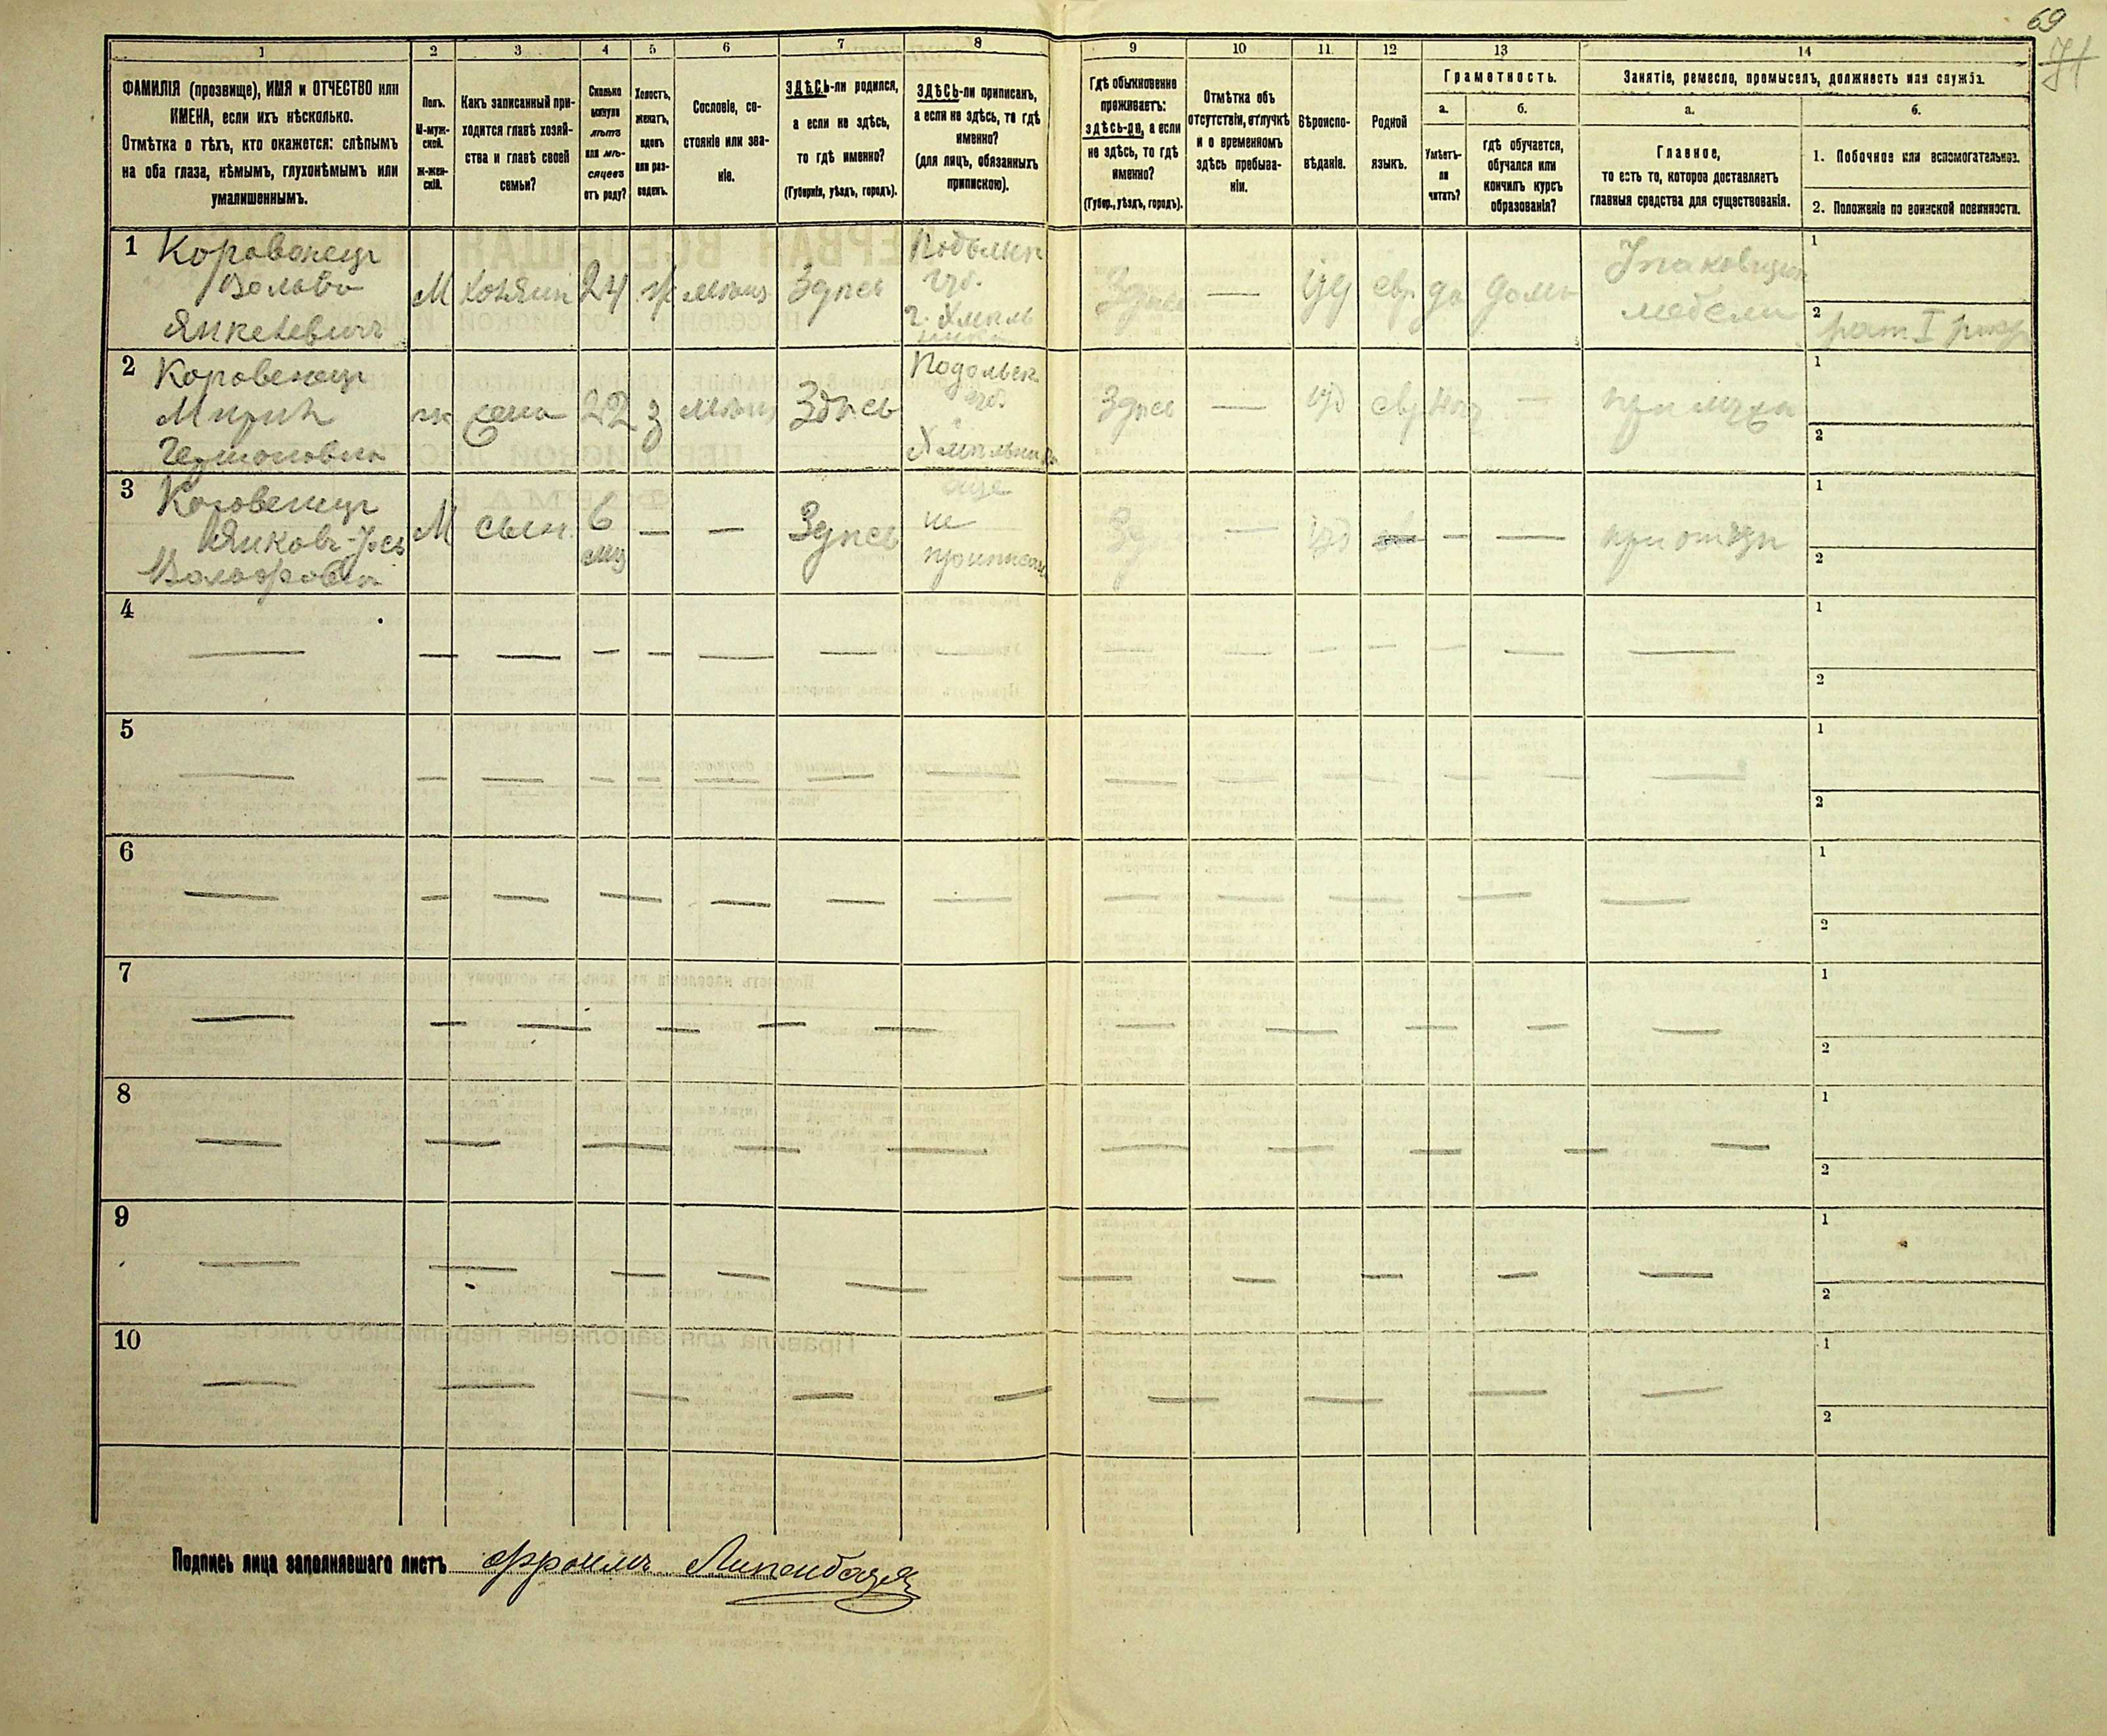 69
71
1
2
3
4
5
6
7
8
9
10
11
12
13
14
ФАМИЛІЯ (прозвище), ИМЯ и ОТЧЕСТВО или
ИМЕНА, если ихъ нѣсколько.
Отмѣтка о тѣхъ, кто окажется: слѣпымъ
на оба глаза, нѣмымъ, глухонѣмымъ или
умалишеннымъ.
Полъ.
М-муж-
ской.
Ж-жен-
скій.
Какъ записанный при-
ходится главѣ хозяй-
ства и главѣ своей
семьи?
Сколько
минуло
лѣтъ
или мѣ-
сяцевъ
отъ роду?
Холостъ,
женатъ,
вдовъ
или раз-
веденъ.
Сословіе, со-
стояніе или зва-
ніе.
ЗДѢСЬ-ли родился,
а если не здѣсь,
то гдѣ именно?
(Губернія, уѣздъ, городъ).
ЗДѢСЬ-ли приписанъ,
а если не здѣсь, то гдѣ
именно?
(для лицъ, обязанныхъ
припискою).
Гдѣ обыкновенно
проживаетъ:
здѣсь-ли, а если
не здѣсь, то гдѣ
именно?
(Губер., уѣздъ, городъ).
Отмѣтка объ
отсутствіи, отлучкѣ
и о временномъ
здѣсь пребыва-
ніи.
Вѣроиспо-
вѣданіе.
Родной
языкъ.
Грамотность.
а.
б.
Умѣетъ-
ли
читать?
гдѣ обучается,
обучался или
кончилъ курсъ
образованія?
Занятіе, ремесло, промыселъ, должность или служба.
а.
б.
Главное,
то есть то, которое доставляетъ
главныя средства для существованія.
1. Побочное или вспомогательное.
2. Положеніе по воинской повинности.
1
Коровенецъ
Янкелевичъ
М
хозяин
24
ж
мѣщ
Здѣсь
Подольск
губ.
г. Хмель
ника
Здѣсь
—
іуд
евр
да
дома
мебели
1
2
рат. I разр
2
Коровенецъ
Гершоновна
ж
жена
22
з
мѣщ
Здѣсь
Подольск
губ.
Хмельник
Здѣсь
—
іуд
евр
нѣт
—
при мужѣ
1
2
3
Коровенецъ
Янковъ-Іось
Вольфовъ
М
сын
6
мѣс
—
—
Здѣсь
еще
не
приписан
—
іуд
—
—
при отцѣ
1
2
4
1
2
5
1
2
6
1
2
7
1
2
8
1
2
9
1
2
10
1
2
Подпись лица заполнявшаго листъ Фроимъ